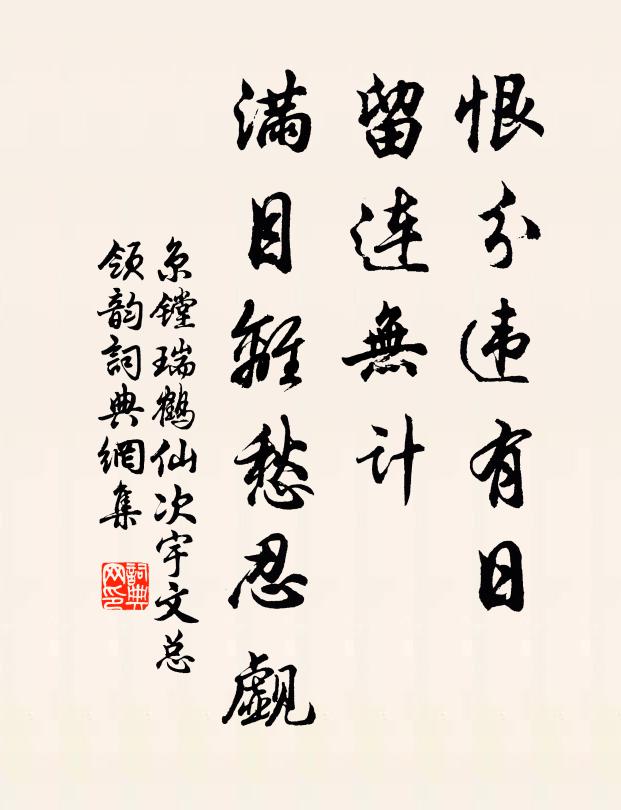 恨分违有日
留连無计
满目離愁忍觑
京镗瑞鶴仙次宇文总
领韵詞典網集
詞典网印